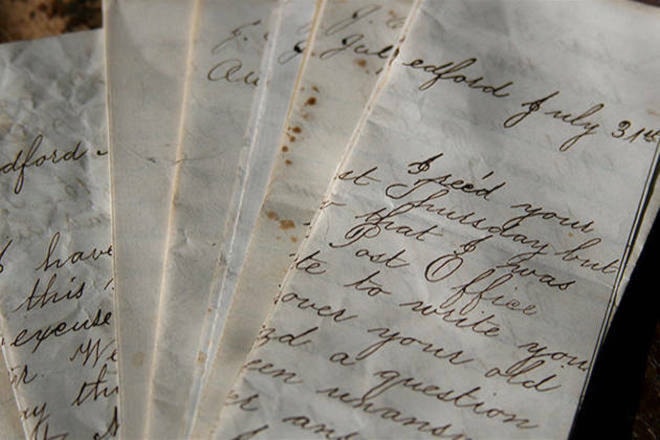 dford
I have
this
excuse
r. We
ay thi
Au
July
edford July 31st
I rec'd your
st Thursday but
that I was
Post Office
te to write you
over your old
d a question
een unansw
er an